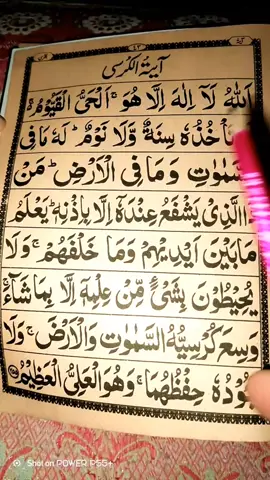 آیة الکرسی
اَللّٰهُ لَاۤ اِلٰهَ اِلَّا هُوَ ۚ اَلْحَیُّ الْقَیُّوْمُ ۚ
تَاْخُذُهٗ سِنَةٌ وَّلَا نَوْمٌ ؕ لَهٗ مَا فِی
السَّمٰوٰتِ وَمَا فِی الْاَرْضِ ؕ مَنْ
ذَا الَّذِیْ یَشْفَعُ عِنْدَهٗۤ اِلَّا بِاِذْنِهٖ ؕ یَعْلَمُ
مَا بَیْنَ اَیْدِیْهِمْ وَمَا خَلْفَهُمْ ۚ وَلَا
یُحِیْطُوْنَ بِشَیْءٍ مِّنْ عِلْمِهٖۤ اِلَّا بِمَا شَآءَ ۚ
وَسِعَ كُرْسِیُّهُ السَّمٰوٰتِ وَالْاَرْضَ ۚ وَلَا
یَـُٔوْدُهٗ حِفْظُهُمَا ۚ وَهُوَ الْعَلِیُّ الْعَظِیْمُ
Shot on POWER P55+